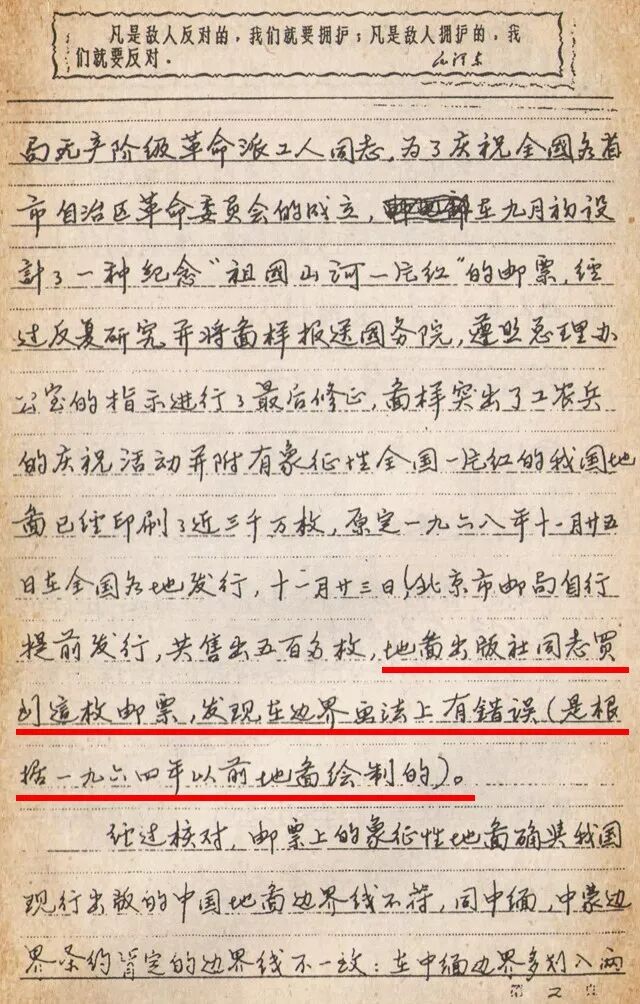 凡是敌人反对的，我们就要拥护；凡是敌人拥护的，我
们就要反对。 毛泽东
局无产阶级革命派工人同志，为了庆祝全國各省
市自治区革命委员会的成立，在九月初设
計了一种纪念“祖国山河一片红”的邮票，经
过反复研究并将图样报送国务院，遵照总理办
公室的指示进行了最后修正，图样突出了工农兵
的庆祝活动并附有象征性全国一片红的我国地
图已经印刷了近三千万枚，原定一九六八年十一月廿五
日在全国各地发行，十一月廿三日北京市邮局自行
提前发行，共售出五百多枚，地图出版社同志买
到這枚邮票，发现在边界画法上有错误（是根
据一九六四年以前地图绘制的）。
经过核对，邮票上的象征性地图确与我国
现行出版的中国地图边界线不符，同中缅，中蒙边
界条约肯定的边界线不一致：在中缅边界多划入两
第 2 页